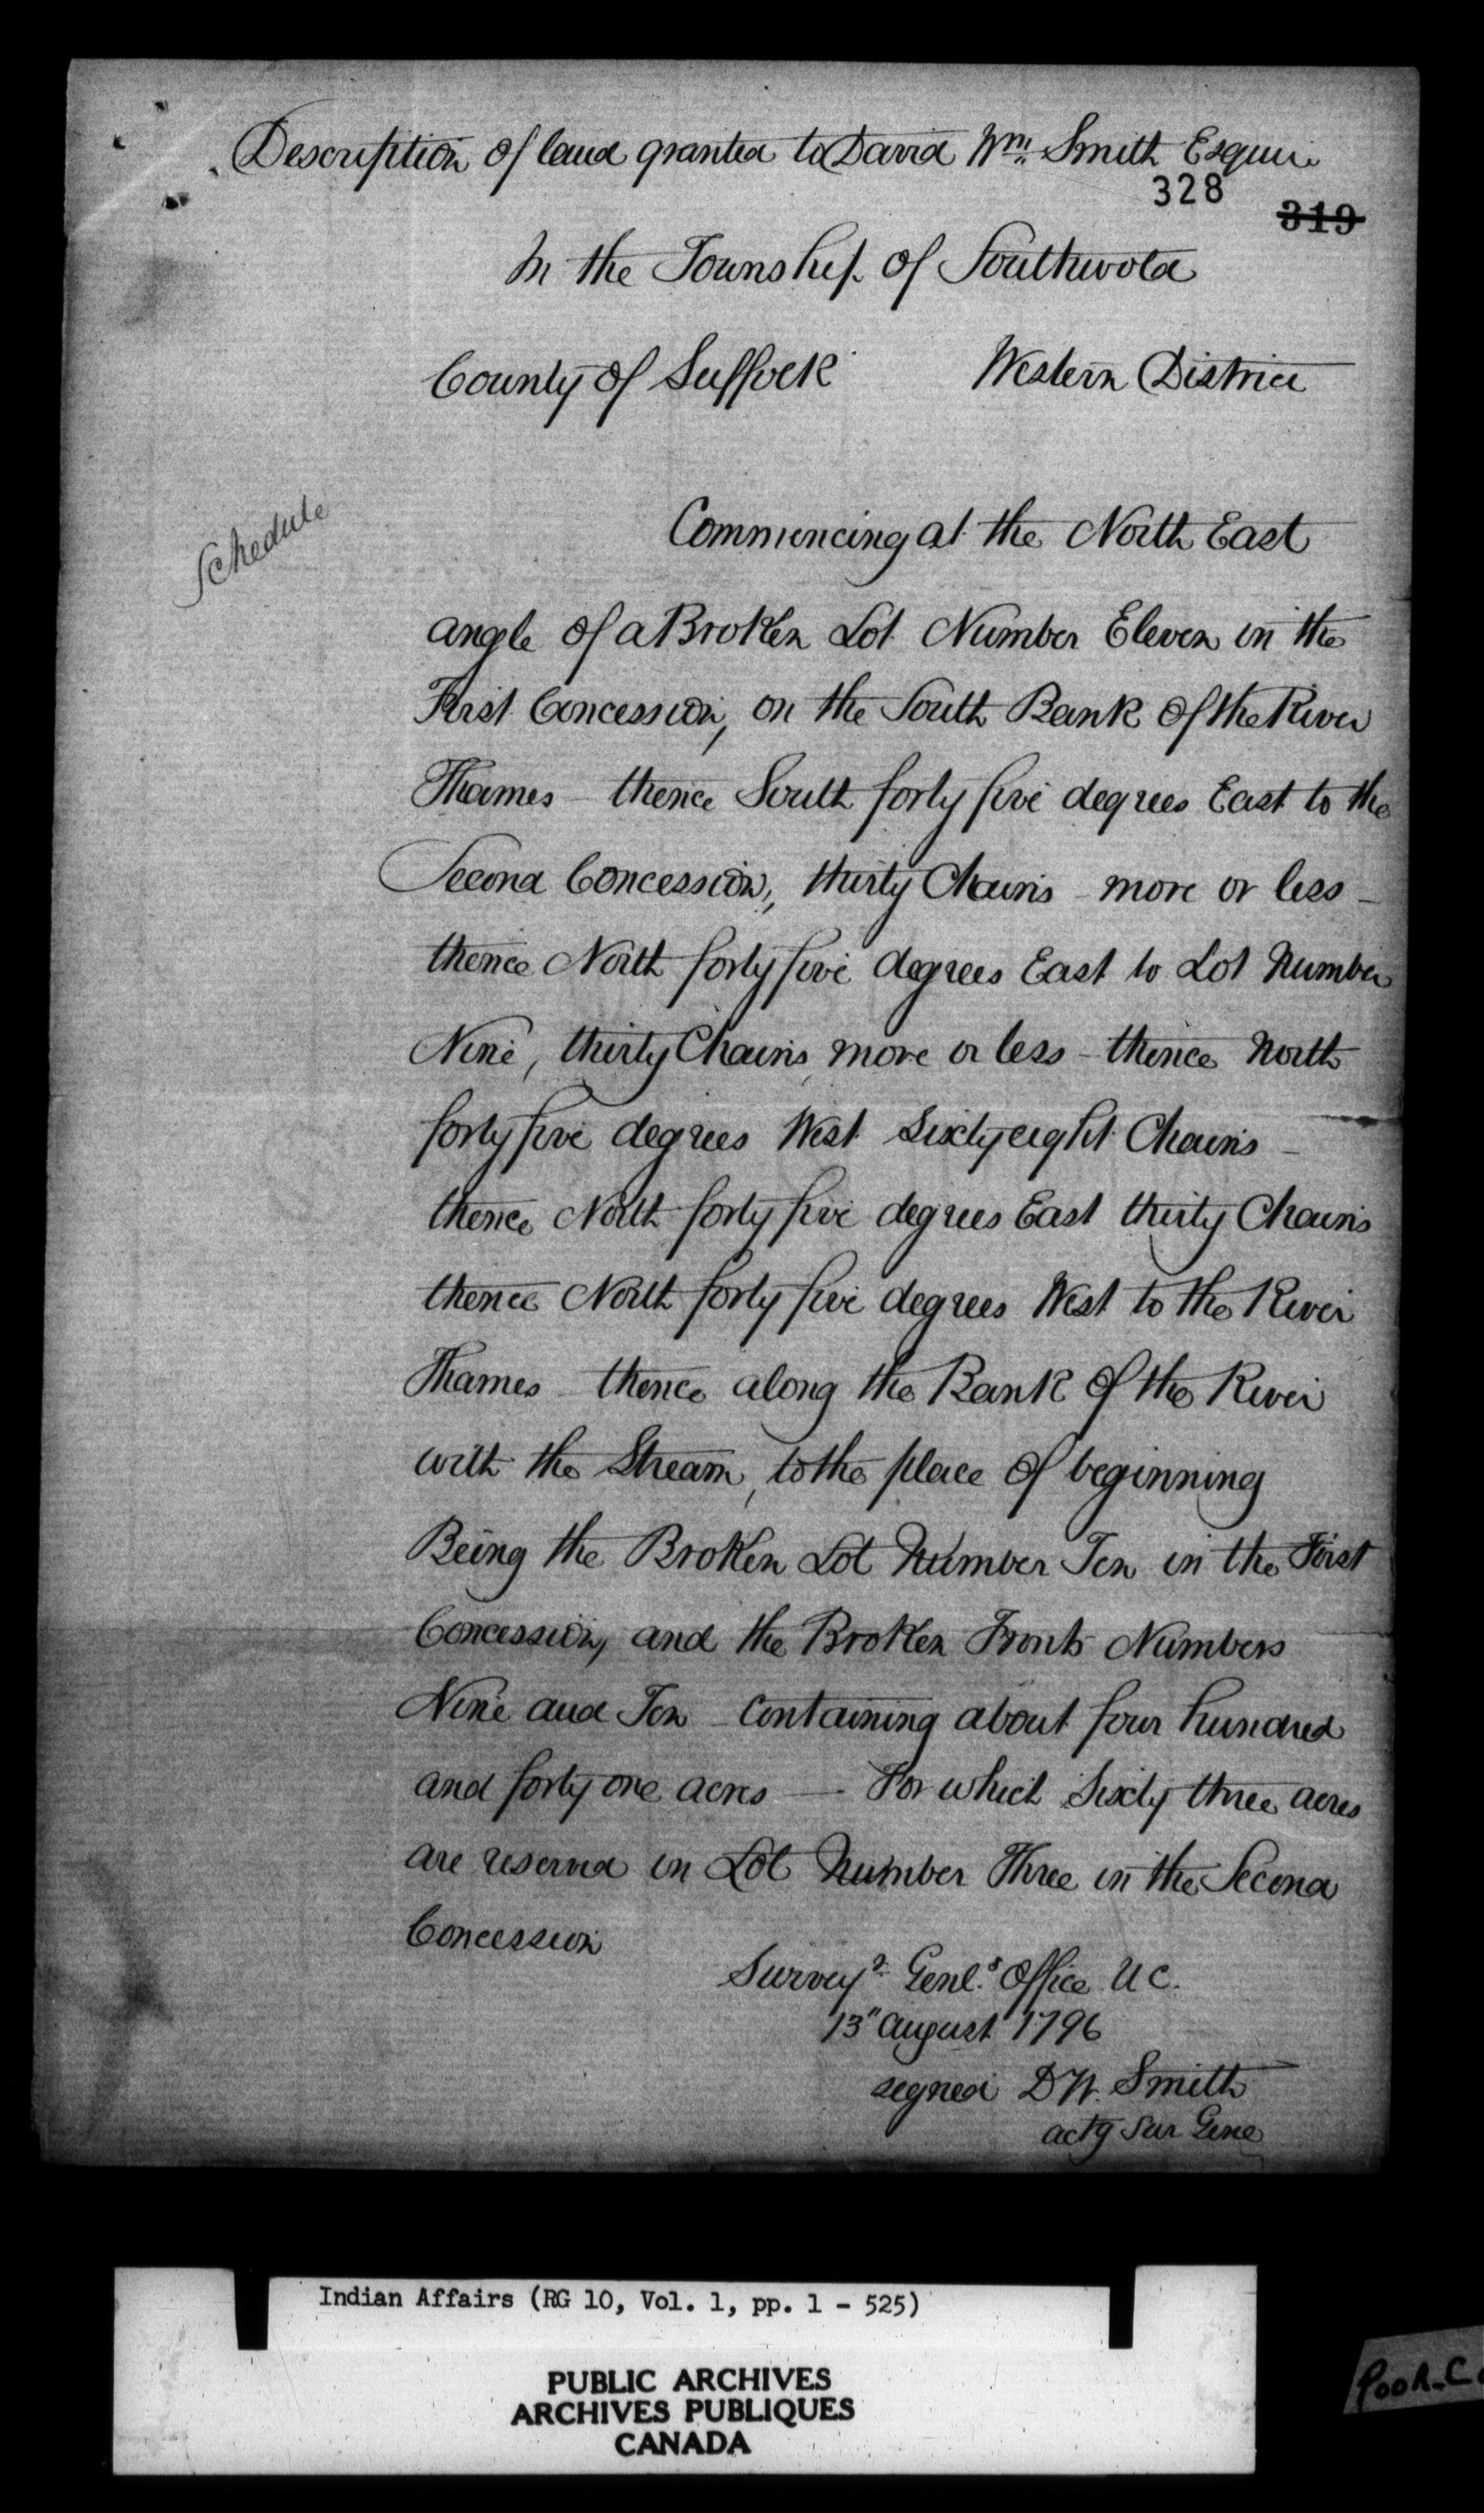 Description of land granted to David Wm. Smith Esquire
328
319
In the Township of Southwold
County of Suffolk Western District
Schedule
Commencing at the North East
angle of a Broken Lot Number Eleven in the
First Concession, on the South Bank of the River
Thames – thence South forty five degrees East to the
Second Concession, thirty Chains – more or less –
thence North forty five degrees East to Lot Number
Nine, thirty Chains, more or less – thence North
forty five degrees West Sixty eight Chains –
thence North forty five degrees East thirty Chains
thence North forty five degrees West to the River
Thames – thence along the Bank of the River
with the Stream, to the place of beginning
Being the Broken Lot Number Ten in the First
Concession, and the Broken Fronts Numbers
Nine and Ten – Containing about four hundred
and forty one acres — For which Sixty three acres
are reserved in Lot Number Three in the Second
Concession
Surveyr Genl.s Office U C.
13" August 1796
signed D W. Smith
actg Sur Gene
Indian Affairs (RG 10, Vol. 1, pp. 1 - 525)
PUBLIC ARCHIVES
ARCHIVES PUBLIQUES
CANADA